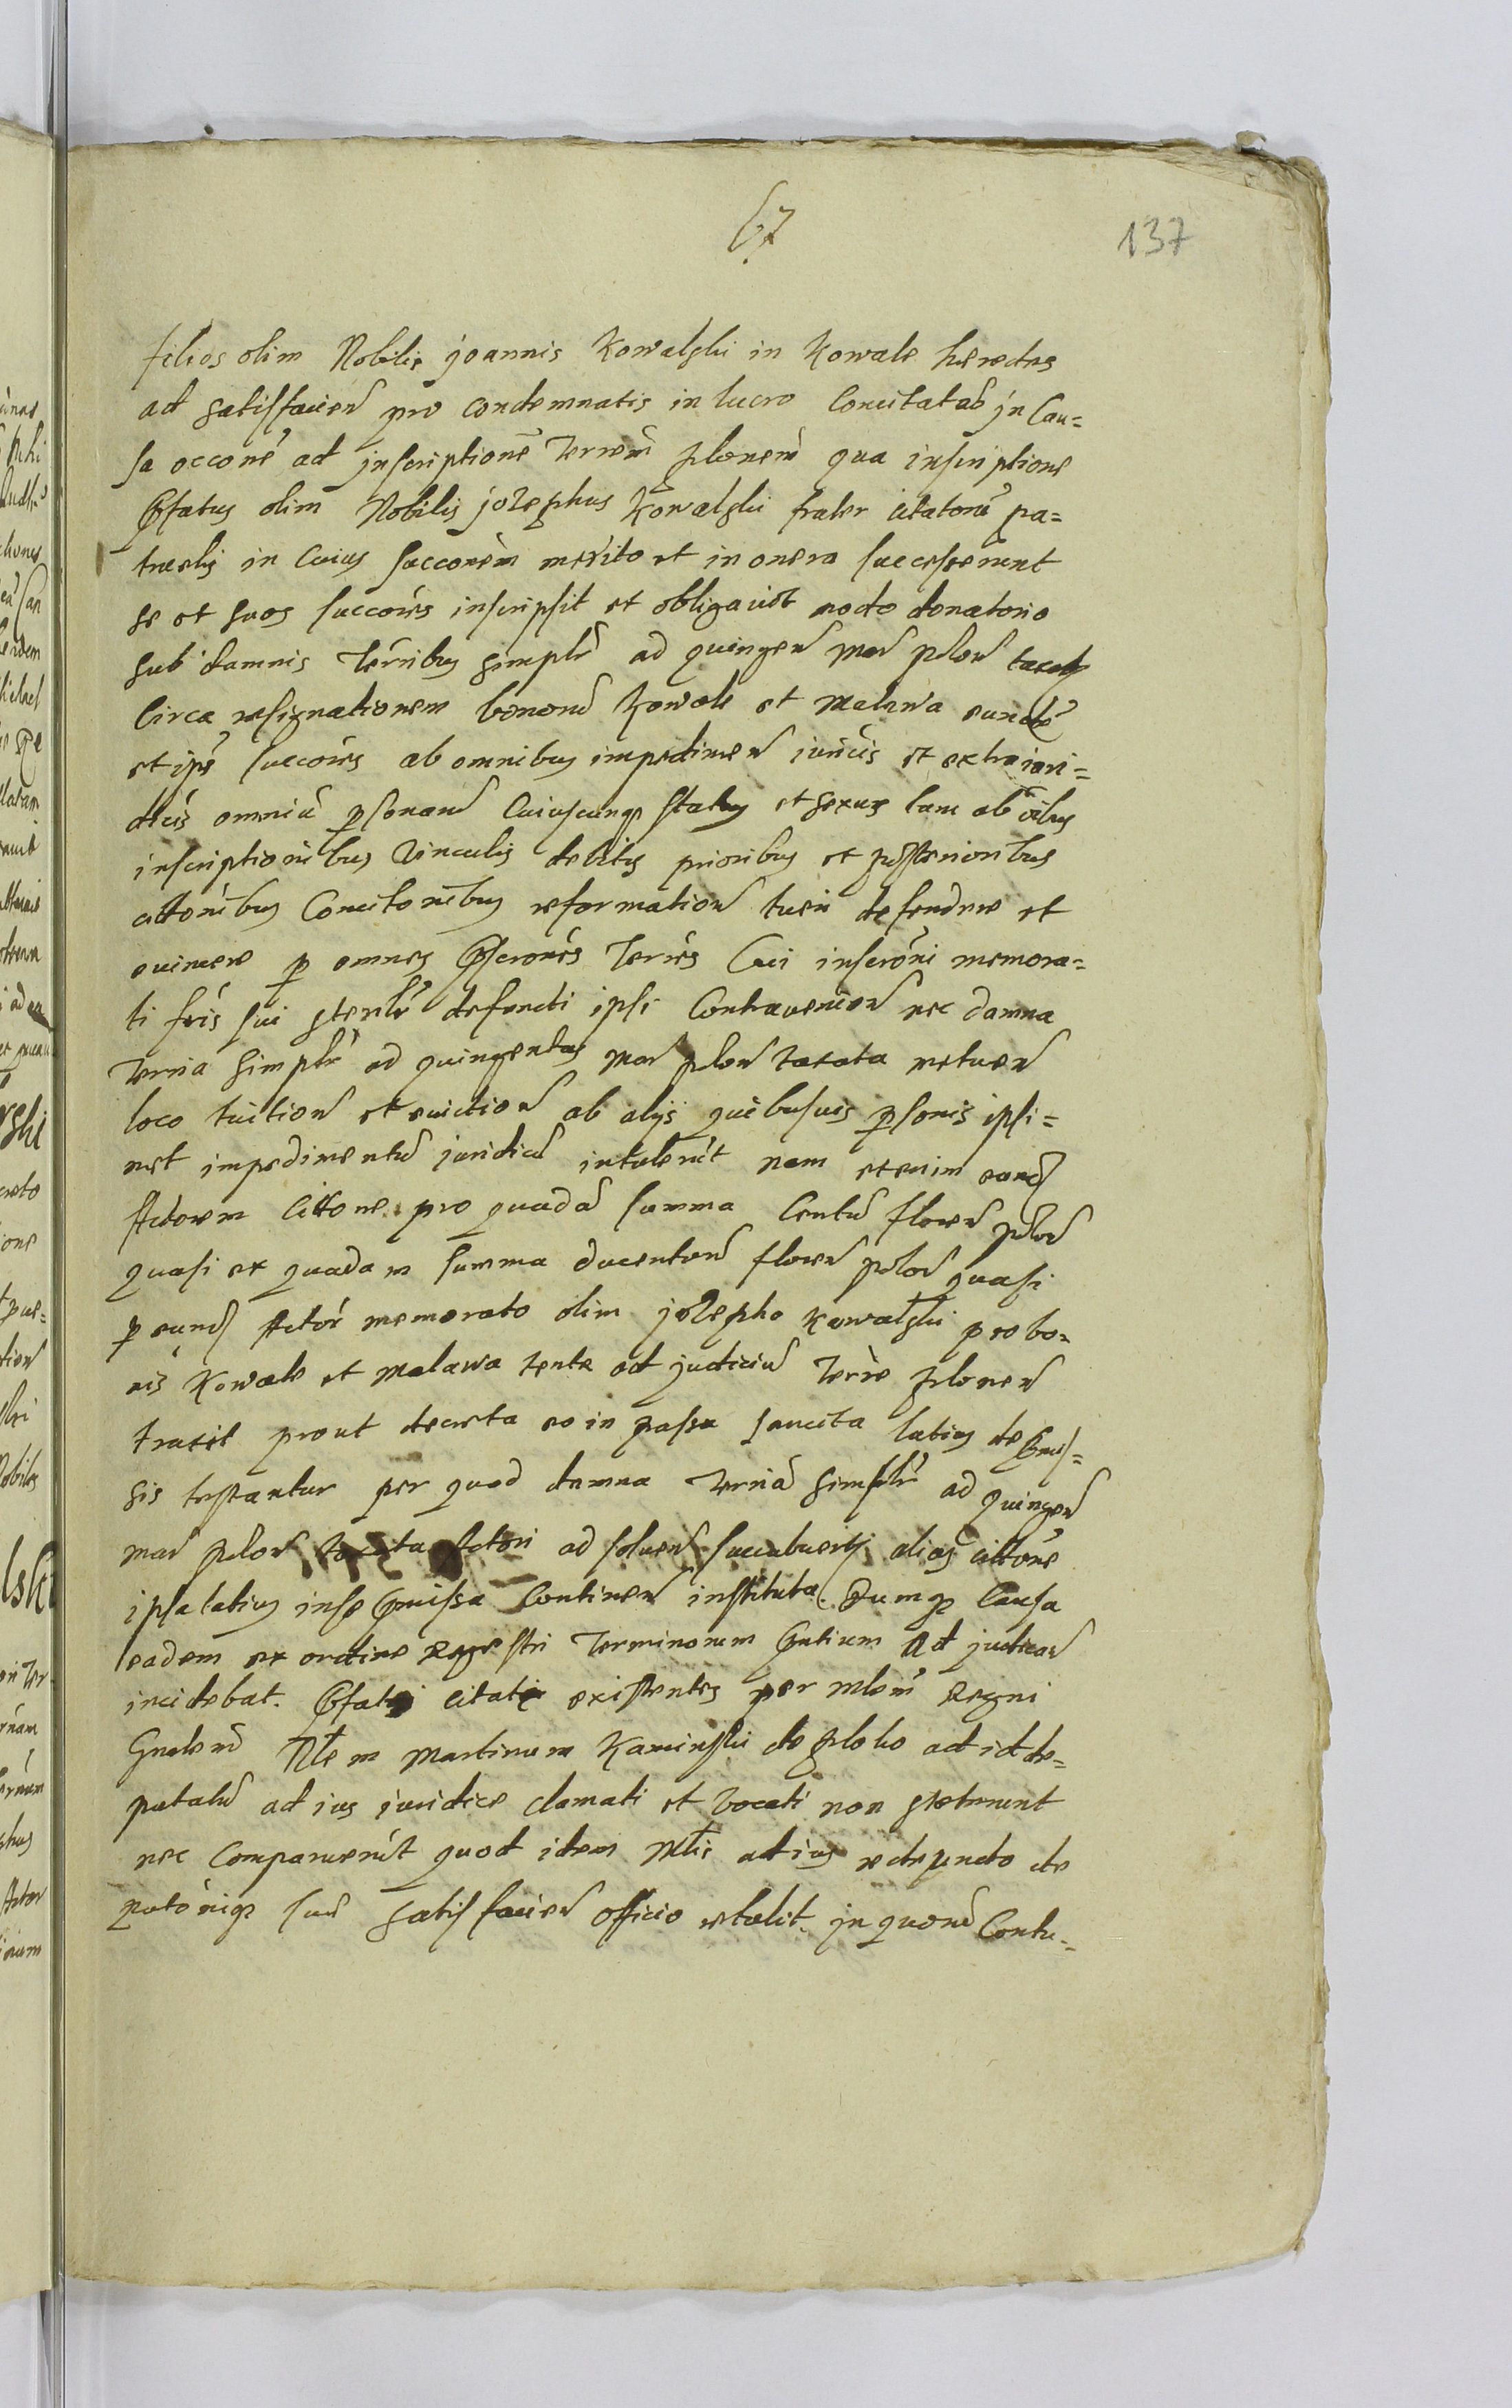 67
137
filios olim Nobilis Joannis Kowalski in Kowale heredes
ad satisfacien pro condemnatis in lucro Concitatos in Cau=
sa occone ad inscriptione Terrem Plonen qua inscriptione
Pfatus olim Nobilis Jozephus Kowalski frater citatoru pa=
truelis in cuius succonem merito et in onera successerunt
se et suos succores inscripsit et obligavit modo donatorio
sub damnis Ternibus simplr ad quingen mar polon taxatis
Circa resignationem bonoru Kowale et Malawa eunde
et ips succores ab omnibus impedimen iuricis et extraiuri=
dicis omniu psonaru Cuiuscunqe status et sexus tam ab oibus
inscriptionibus Vinculis debitis prioribus et posterioribus
cittonibus Concitonibus reformation tueri defendere et
evincere p omnes Pscrones Terres Cui inscroni memora=
ti fris sui sterilr defuncti ipsi Contravenien nec damna
Terna simplr ad quingentas mar polon taxata metuen
loco tuition et eviction ab alys quibusvis psonis ipsi=
met impedimentu juridicu intulerut nam etenim eund
Actorem Cittone pro quada summa Centu floren polon
quasi ex quadam summa ducentoru floren polon quasi
p eund Actor memorato olim Jozepho Kowalski pro bo=
nis Kowale et Malawa tenta ad judiciu Terre Plonen
traxit prout decreta eo in passu sancita latius de Pmis=
sis testantur per quod damna Terna simplr ad quingen
mar polon taxata Actori ad solven succubuerut alias cittone
ipsa latius in se Pmissa Continen instituta. Dumqe Causa
eadem ex ordine Regestri Terminorum Pntium Ad judican
incidebat. Pfati citati existentes per mlem Regni
Gnalem Nlem Martinum Kaminski de Plolio ad id de=
putatu ad ius iuridice clamati et vocati non steterunt
nec Comparuerut quod idem Mlis ad ius redeundo de
putoniqe sue satisfacien officio retulit. In quoru Contu=